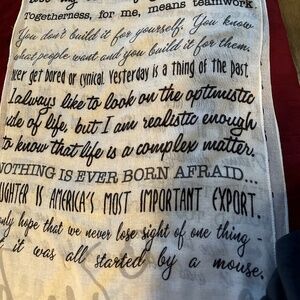 Togetherness, for me, means teamwork.
You don't build it for yourself. You know
what people want and you build it for them.
ever get bored or cynical. Yesterday is a thing of the past.
I always like to look on the optimistic
ide of life, but I am realistic enough
to know that life is a complex matter.
NOTHING IS EVER BORN AFRAID...
UGHTER IS AMERICA'S MOST IMPORTANT EXPORT.
only hope that we never lose sight of one thing -
it was all started by a mouse.